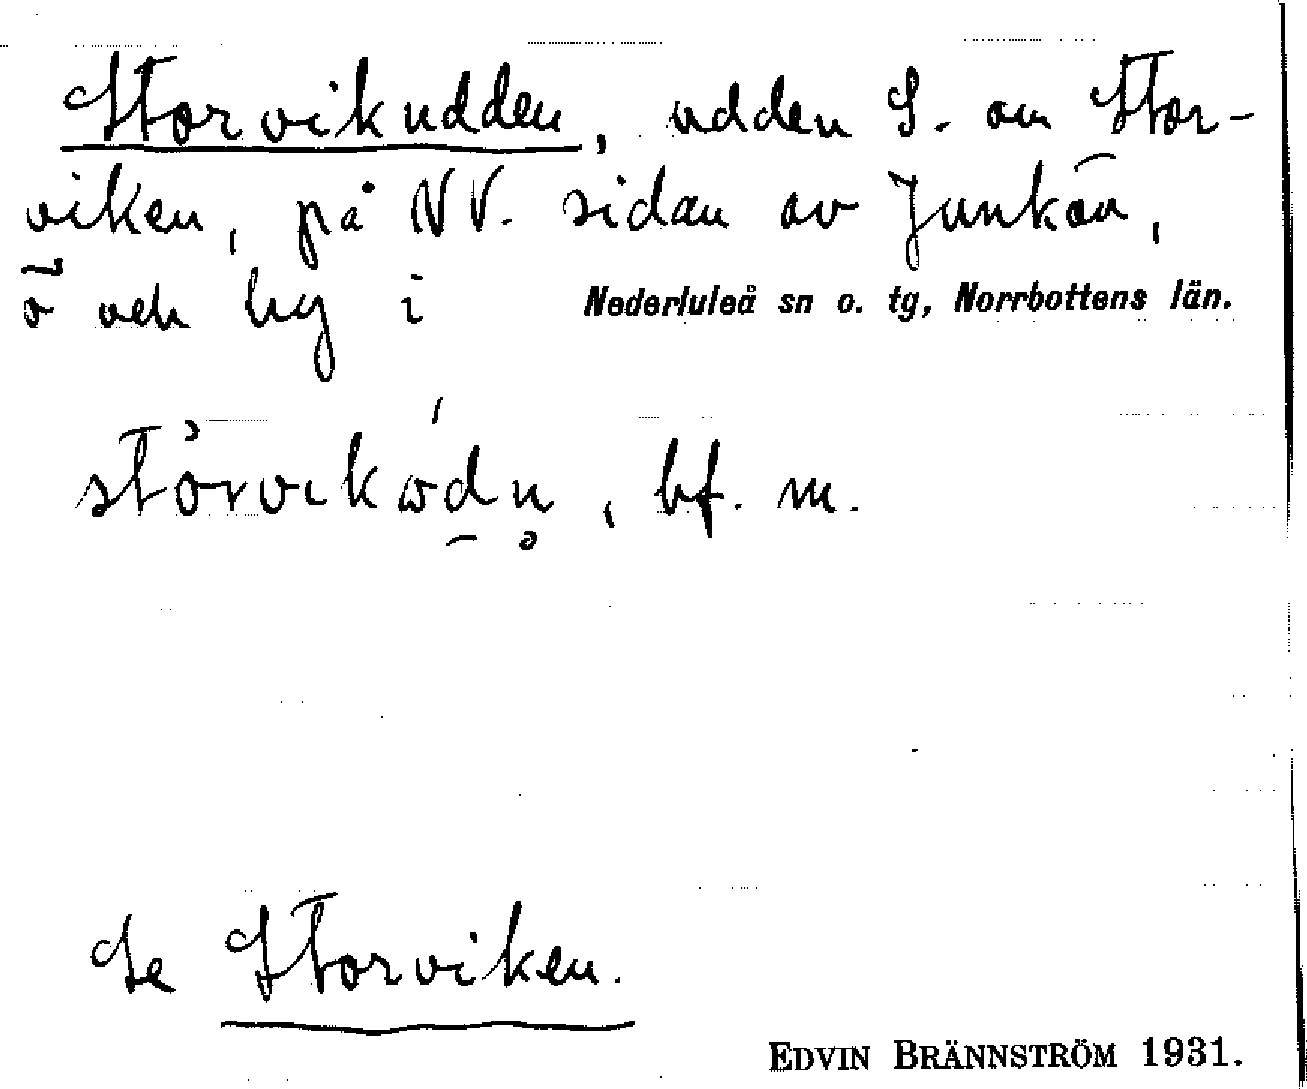 Storvikudden, udden S. om Stor-
viken, på NV. sidan av Junkön,
ö och by i Nederluleå sn o. tg, Norrbottens län.
bf. m.
Se Storviken.
EDVIN BRÄNNSTRÖM 1931.